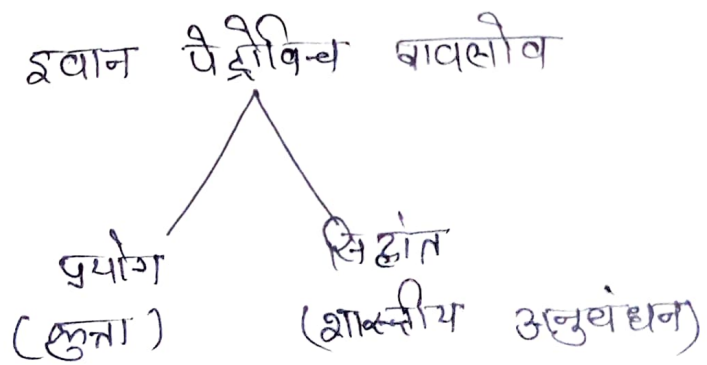 इवान पेट्रोविच पावलोव
प्रयोग सिद्धांत
(कुत्ता) (शास्त्रीय अनुबंधन)